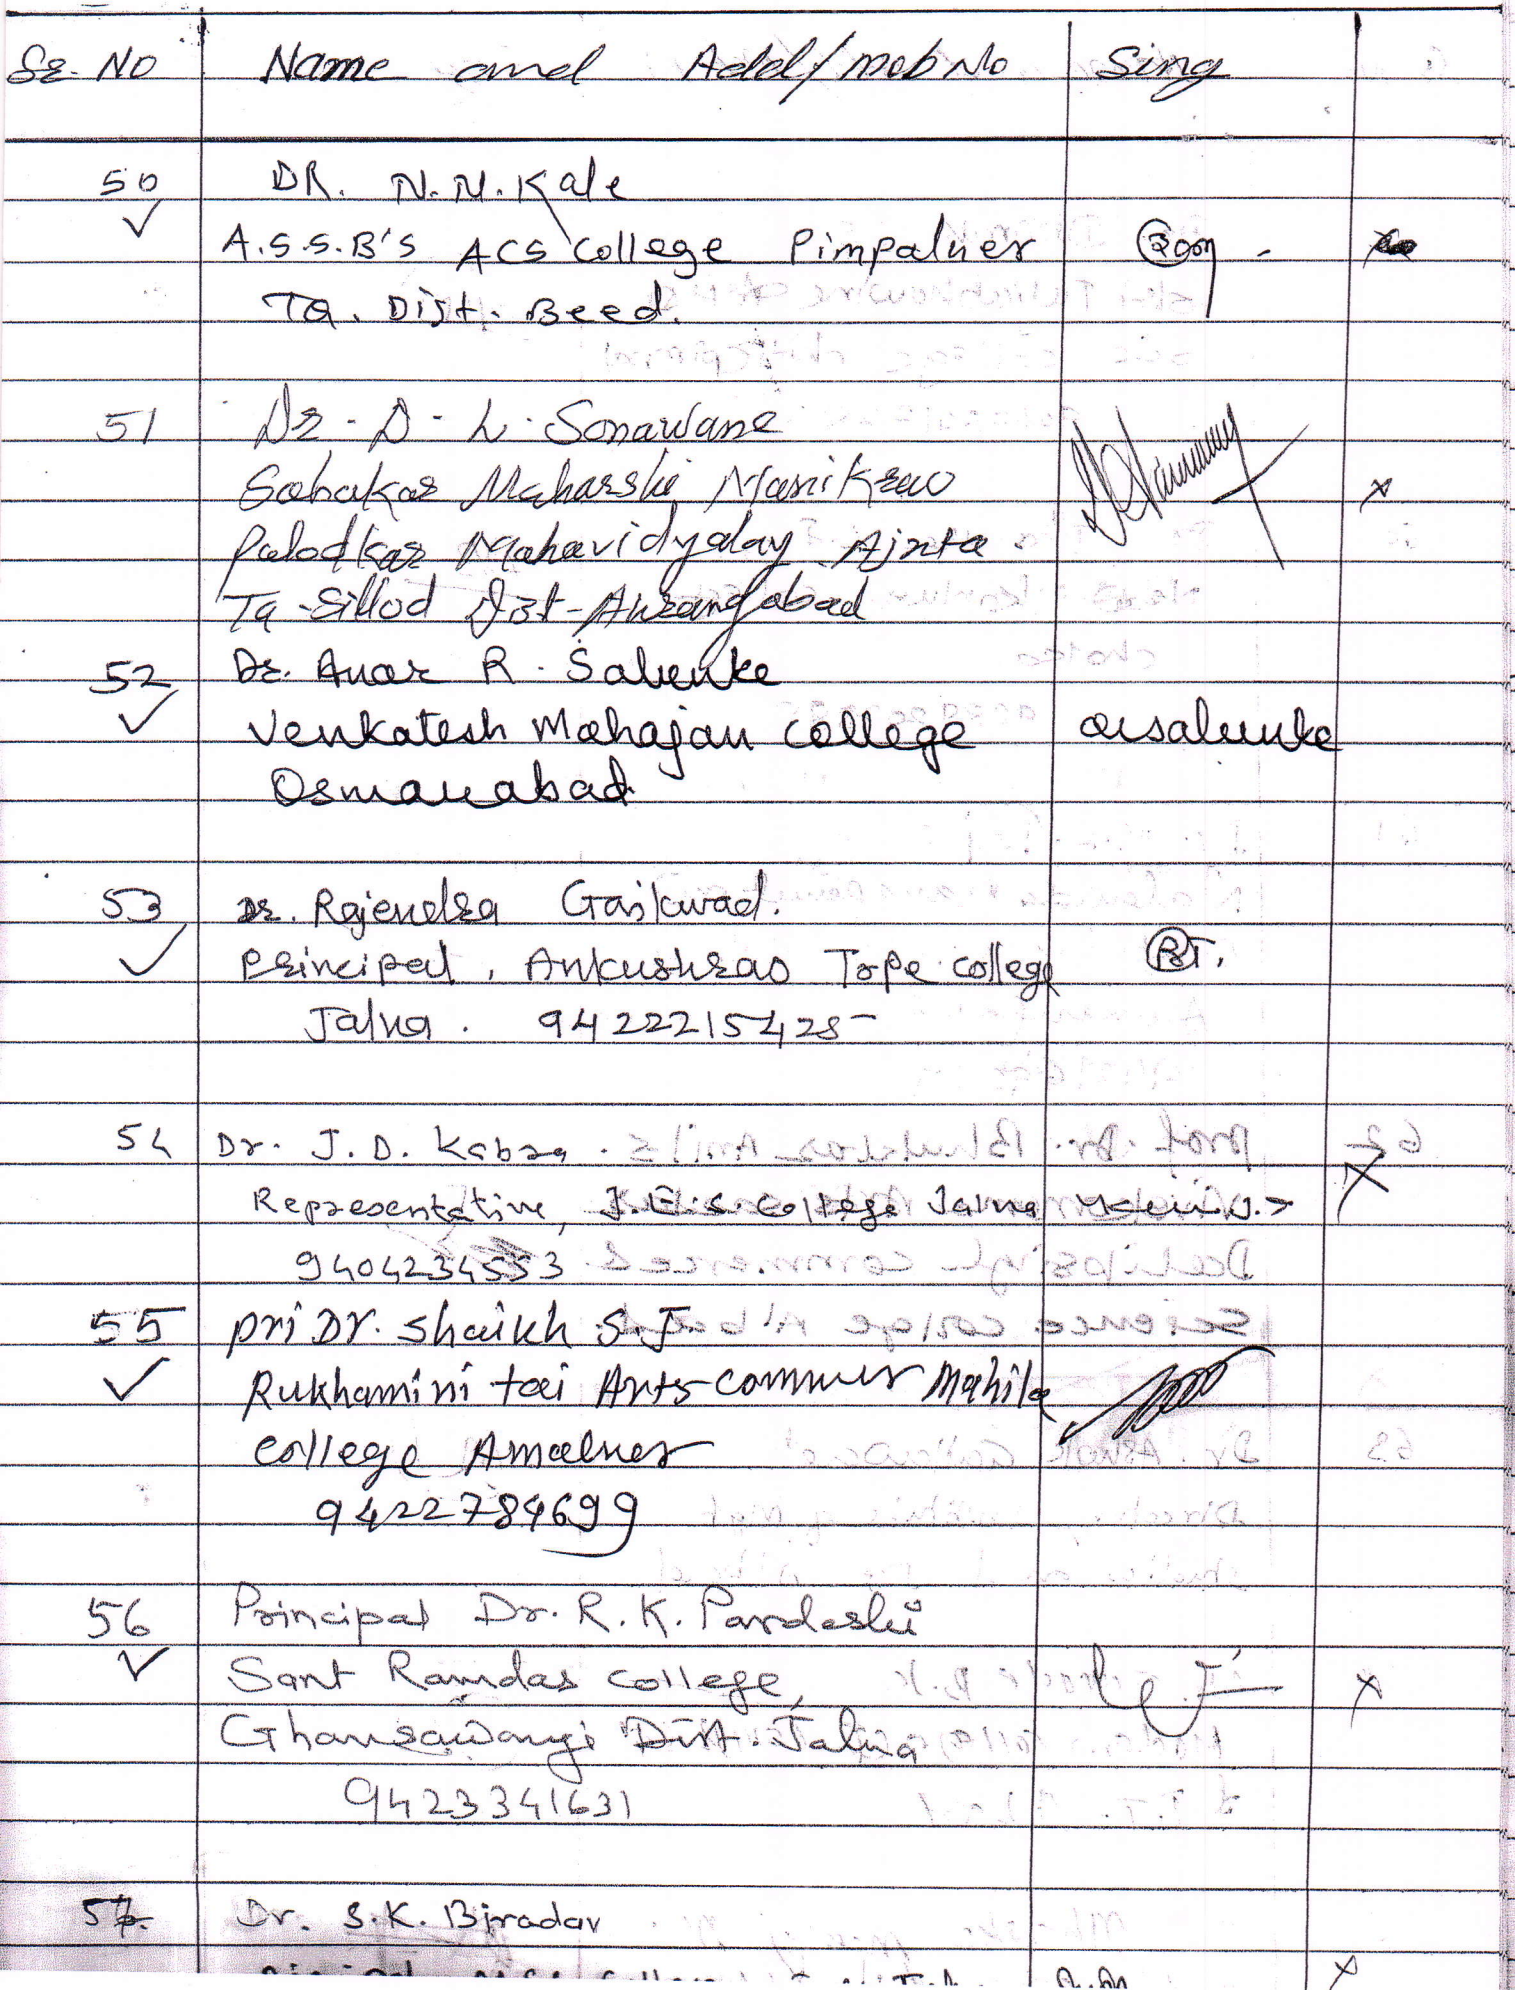 Sr. No Name and Add/mob No Sing
50 DR. N.N. Kale
A.S.S.B'S ACS College Pimpalner
TQ. Dist. Beed.
51 Dr. D. L. Sonawane
Sahakar Maharshi Manikrao
Palodkar Mahavidyalay Ajnta
Tq-Sillod Dist-Aurangabad
52 Dr. Anar R. Salunke
Venkatesh Mahajan College arsalunke
Osmanabad
53 Dr. Rajendra Gaikwad.
Principal, Ankushrao Tope college
Jalna.
54 Dr. J.D. Kabra.
Representative, J.E.S. College Jalna
9404234553
55 pri Dr. Shaikh S.J
Rukhamini tai Arts commer Mahila
College Amalner
9422784699
56 Principal Dr. R.K. Pardeshi
Sant Ramdas College,
Ghansawangi Dist. Jalna
9423341631
57. Dr. S.K. Biradar